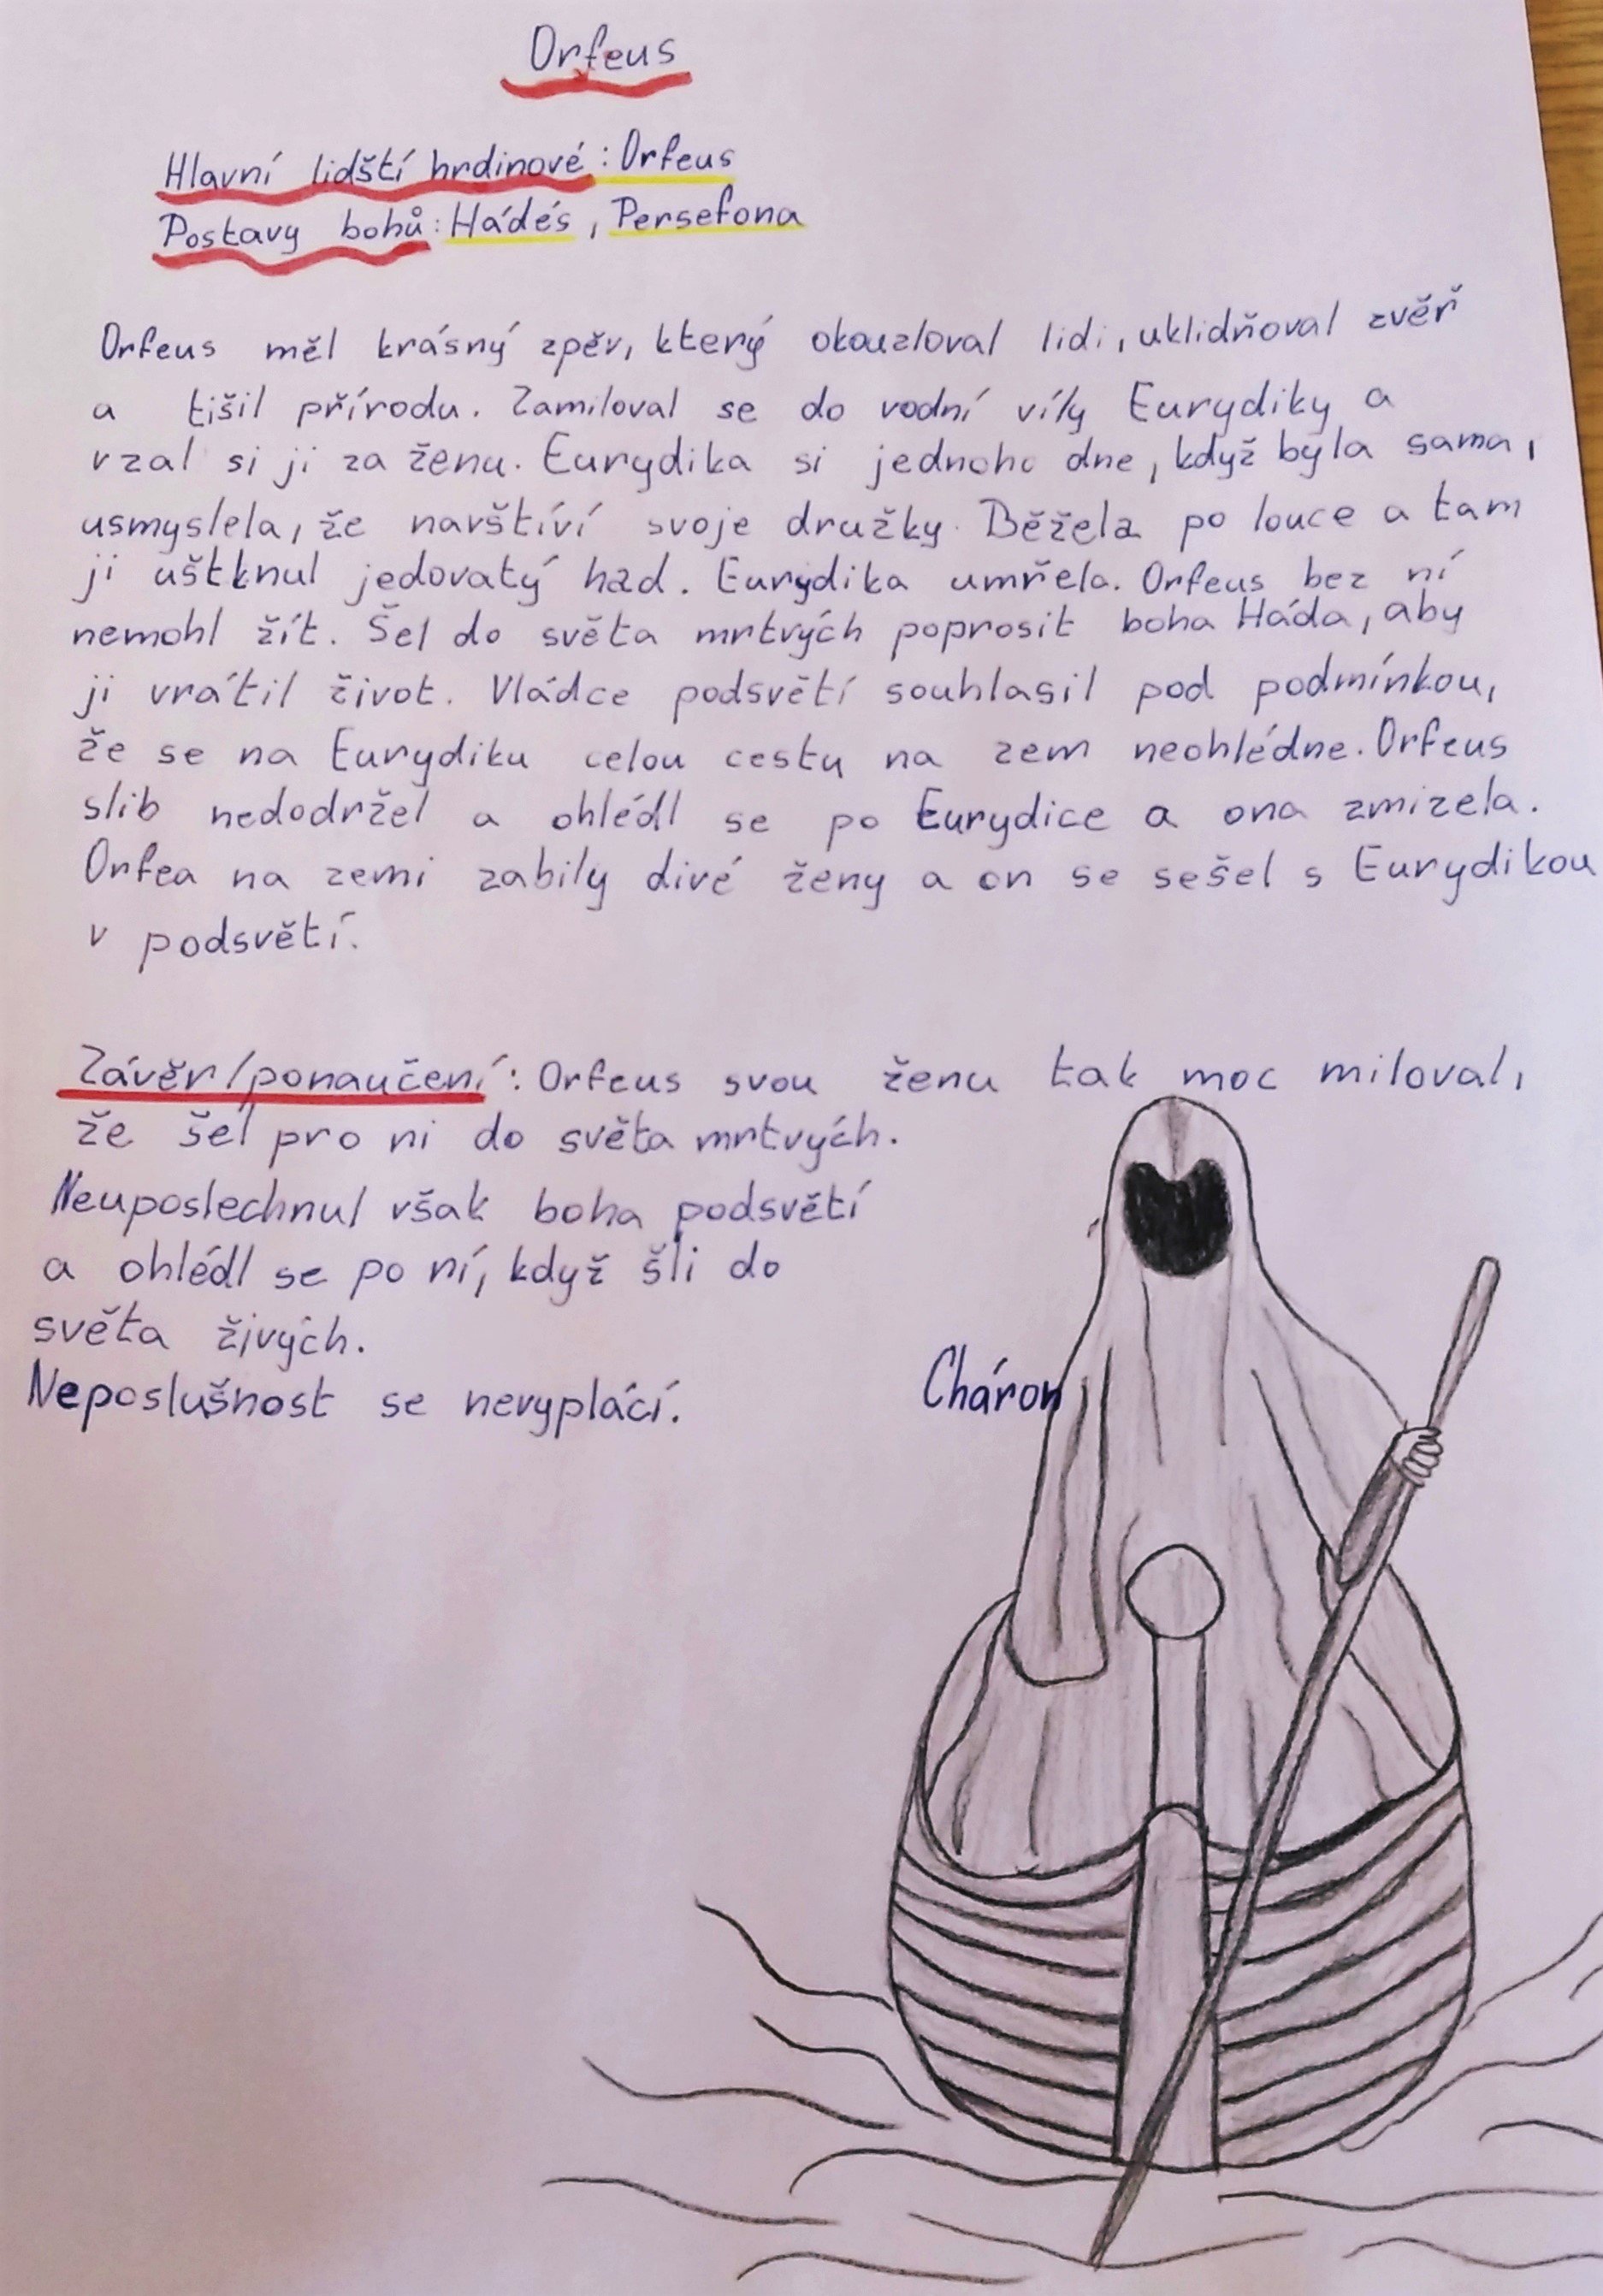 Orfeus
Hlavní lidští hrdinové: Orfeus
Postavy bohů: Hádés, Persefona
Orfeus měl krásný zpěv, který okouzloval lidi, uklidňoval zvěř
a tišil přírodu. Zamiloval se do vodní víly Eurydiky a
vzal si ji za ženu. Eurydika si jednoho dne, když byla sama,
usmyslela, že navštíví svoje družky. Běžela po louce a tam
ji uštknul jedovatý had. Eurydika umřela. Orfeus bez ní
nemohl žít. Šel do světa mrtvých poprosit boha Háda, aby
ji vrátil život. Vládce podsvětí souhlasil pod podmínkou,
že se na Eurydiku celou cestu na zem neohlédne. Orfeus
slib nedodržel a ohlédl se po Eurydice a ona zmizela.
Orfea na zemi zabily divé ženy a on se sešel s Eurydikou
v podsvětí.
Závěr/ponaučení: Orfeus svou ženu tak moc miloval,
že šel pro ni do světa mrtvých.
Neuposlechnul však boha podsvětí
a ohlédl se po ní, když šli do
světa živých.
Neposlušnost se nevyplácí.
Cháron